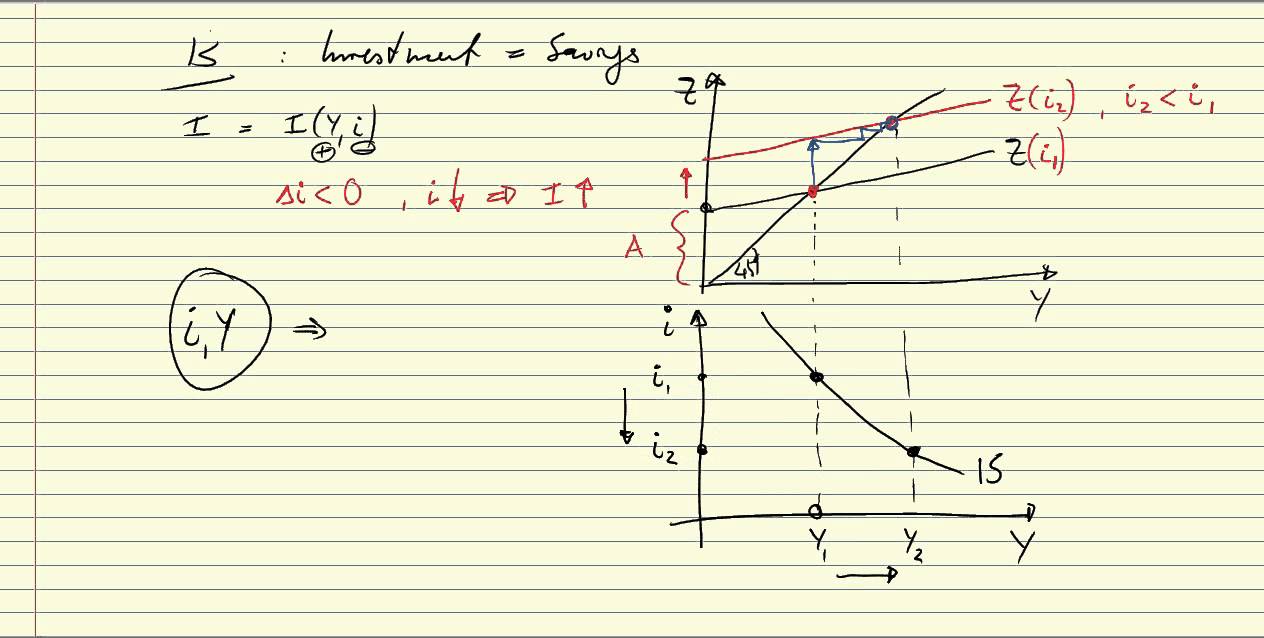 IS : Investment = Savings
I = I(Y, i)
⊕ ⊖
Δi < 0 , i ↓ ⇒ I ↑
i, Y ⇒
Z
Z(i₂) , i₂ < i₁
Z(i₁)
A {
45°
Y
i
i₁
i₂
IS
Y₁ Y₂ Y